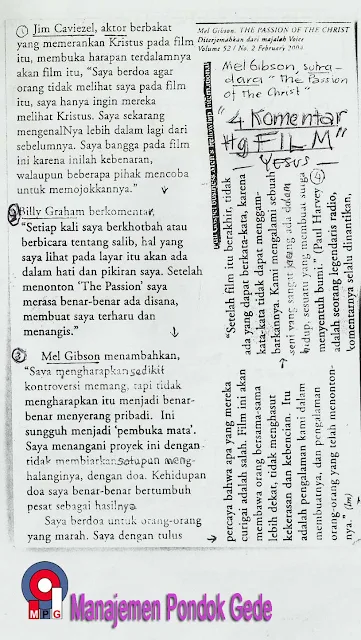 ① Jim Caviezel, aktor berbakat
yang memerankan Kristus pada film
itu, membuka harapan terdalamnya
akan film itu, "Saya berdoa agar
orang tidak melihat saya pada film
itu, saya hanya ingin mereka
melihat Kristus. Saya sekarang
mengenalNya lebih dalam lagi dari
sebelumnya. Saya bangga pada film
ini karena inilah kebenaran,
walaupun beberapa pihak mencoba
untuk memojokkannya."
② Billy Graham berkomentar,
"Setiap kali saya berkhotbah atau
berbicara tentang salib, hal yang
saya lihat pada layar itu akan ada
dalam hati dan pikiran saya. Setelah
menonton 'The Passion' saya
merasa benar-benar ada disana,
membuat saya terharu dan
menangis."
③ Mel Gibson menambahkan,
"Saya mengharapkan sedikit
kontroversi memang, tapi tidak
mengharapkan itu menjadi benar-
benar menyerang pribadi. Ini
sungguh menjadi 'pembuka mata'.
Saya menangani proyek ini dengan
tidak membiarkan satupun meng-
halanginya, dengan doa. Kehidupan
doa saya benar-benar bertumbuh
pesat sebagai hasilnya.
Saya berdoa untuk orang-orang
yang marah. Saya dengan tulus
percaya bahwa apa yang mereka
curigai adalah salah. Film ini akan
membawa orang bersama-sama
lebih dekat, tidak menghasut
kekerasan dan kebencian. Itu
adalah pengalaman kami dalam
membuatnya, dan pengalaman
orang-orang yang telah menonton-
nya." (Jm)
Mel Gibson, THE PASSION OF THE CHRIST
Diterjemahkan dari majalah Voice
Volume 52 / No. 2 Februari 2004
Mel Gibson, sutra-
dara "The Passion
of The Christ"
"4 Komentar
ttg FILM"
YESUS —
"Setelah film itu berakhir, tidak
ada yang dapat berkata-kata, karena
kata-kata tidak dapat menggam-
barkannya. Kami mengalami sebuah
seni yang sangat jarang ada dalam
hidup, sesuatu yang membuat surga
menyentuh bumi." (Paul Harvey ④
adalah seorang legendaris radio,
komentarnya selalu dinantikan,
MPG
Manajemen Pondok Gede